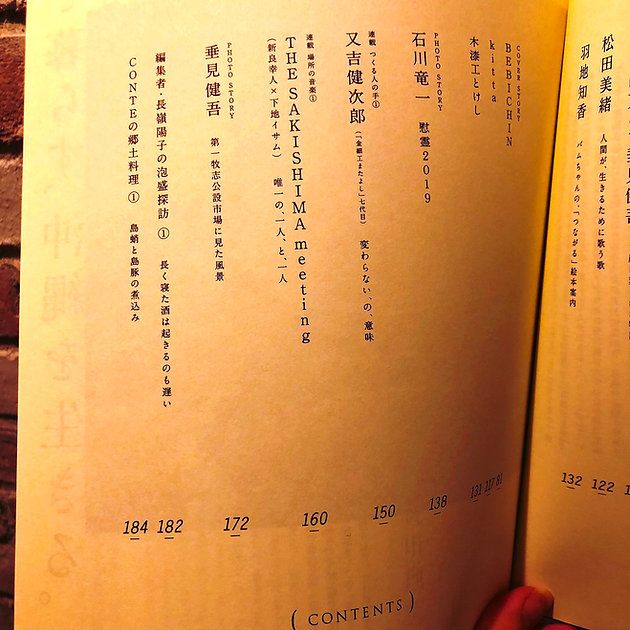 松田美緒 人間が、生きるために歌う歌 122
羽地知香 バムちゃんの、「つながる」絵本案内 132
COVER STORY
BEBICHIN 81
kitta 117
木漆工とけし 131
PHOTO STORY
石川竜一 慰霊2019 138
連載 つくる人の手①
又吉健次郎(「金細工またよし」七代目) 変わらない、の、意味 150
連載 場所の音楽①
THE SAKISHIMA meeting 160
(新良幸人×下地イサム) 唯一の、一人、と、一人
PHOTO STORY
垂見健吾 第一牧志公設市場に見た風景 172
編集者・長嶺陽子の泡盛探訪① 長く寝た酒は起きるのも遅い 182
CONTEの郷土料理① 島蛸と島豚の煮込み 184
(CONTENTS)
沖縄を生きる。